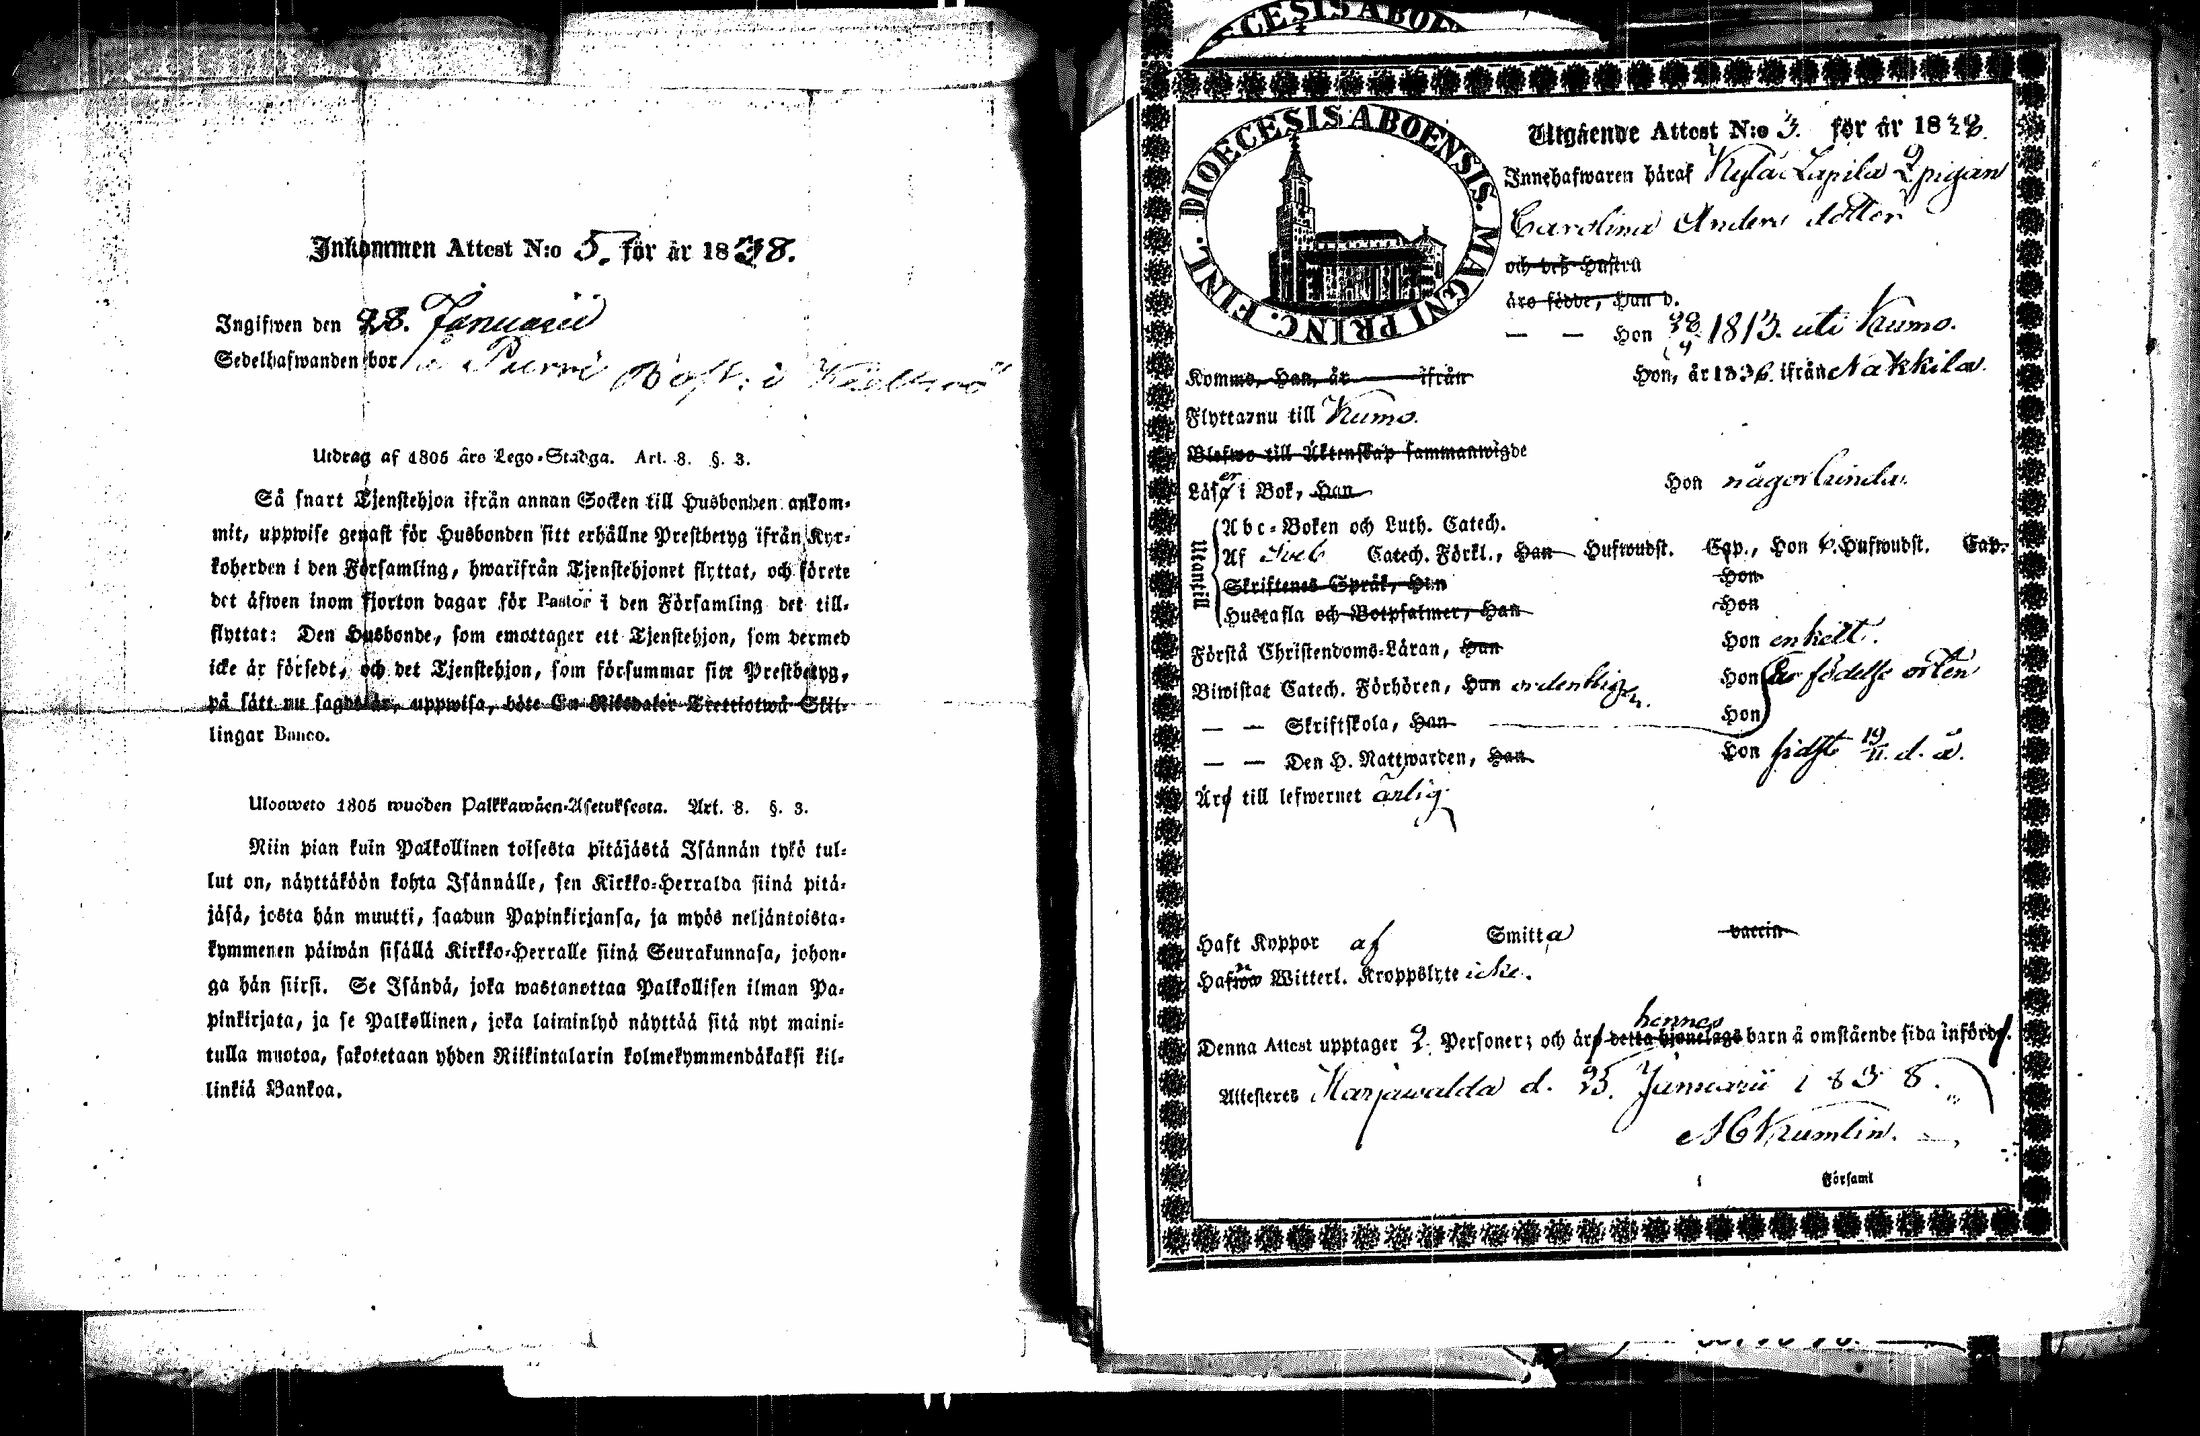 Inkommen Attest N:o 5. för år 1838.
Ingifwen den 28. Januarii
Sedelhafwanden bor
Utdrag af 1805 års Lego-Stadga. Art. 8. §. 3.
Så snart Tjenstehjon ifrån annan Socken till Husbonden ankom-
mit, uppwise genast för Husbonden sitt erhållne Prestbetyg ifrån Kyr-
koherden i den Församling, hwarifrån Tjenstehjonet flyttat, och förete
det äfwen inom fjorton dagar för Pastor i den Församling det till-
flyttat: Den Husbonde, som emottager ett Tjenstehjon, som dermed
icke är försedt, och det Tjenstehjon, som försummar sitt Prestbetyg,
på sätt nu sagdt är, uppwisa, böte En Riksdaler Trettiotwå Skil-
lingar Banco.
Ulosweto 1805 wuoden Palkkawäen-Asetuksesta. Art. 8. §. 3.
Niin pian kuin Palkollinen toisesta pitäjästä Isännän tykö tul-
lut on, näyttäköön kohta Isännälle, sen Kirkko-Herralda siinä pitä-
jäsä, josta hän muutti, saadun Papinkirjansa, ja myös neljäntoista-
kymmenen päiwän sisällä Kirkko-Herralle siinä Seurakunnasa, johon-
ga hän siirsi. Se Isändä, joka wastanottaa Palkollisen ilman Pa-
pinkirjata, ja se Palkollinen, joka laiminlyö näyttää sitä nyt maini-
tulla muotoa, sakotetaan yhden Riikintalarin kolmekymmendäkaksi kil-
linkiä Bankoa.
DIOECESIS ABOEN
DIOECESIS ABOENSIS. MAGNI PRINC. FINL.
Utgående Attest N:o 3. för år 1838.
Innehafwaren häraf Kylä Lapila pigan
Carolina Anders dotter
och des Hustru
äro födde, Han d.
— — Hon 28 1813. uti Kumo.
Kommo, Han, år ifrån Hon, år 1836. ifrån Nakkila.
Flyttar nu till Kumo.
Blefwo till Äktenskap sammanwigde
Läser i Bok, Han Hon någorlunda.
Utantill
Abc-Boken och Luth. Catech.
Af Sveb Catech. Förkl., Han Hufwudst. Cap., Hon 6. Hufwudst. Cap.
Skriftenes Språk, Han Hon
Hustafla och Botpsalmer, Han Hon
Förstå Christendoms-Läran, Han Hon enkelt.
Biwistat Catech. Förhören, Han ordentligen. Hon födelse orten
— — Skriftskola, Han Hon
— — Den H. Nattwarden, Han Hon sidst 19/11. d. å.
Är till lefwernet ärlig
Haft Koppor af Smitta vaccin
Hafwa Witterl. Kroppslyte icke.
hennes
Denna Attest upptager 2. Personer; och är detta hjonelags barn å omstående sida införd.
Attesteres Harjawalda d. 25. Januarii 1838.
Krumlin.
Församl